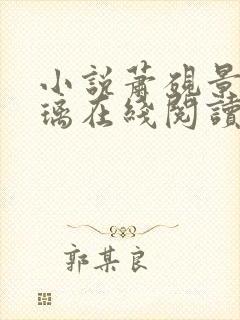 小說蕭硯景
璃在綫閱讀
郭某良